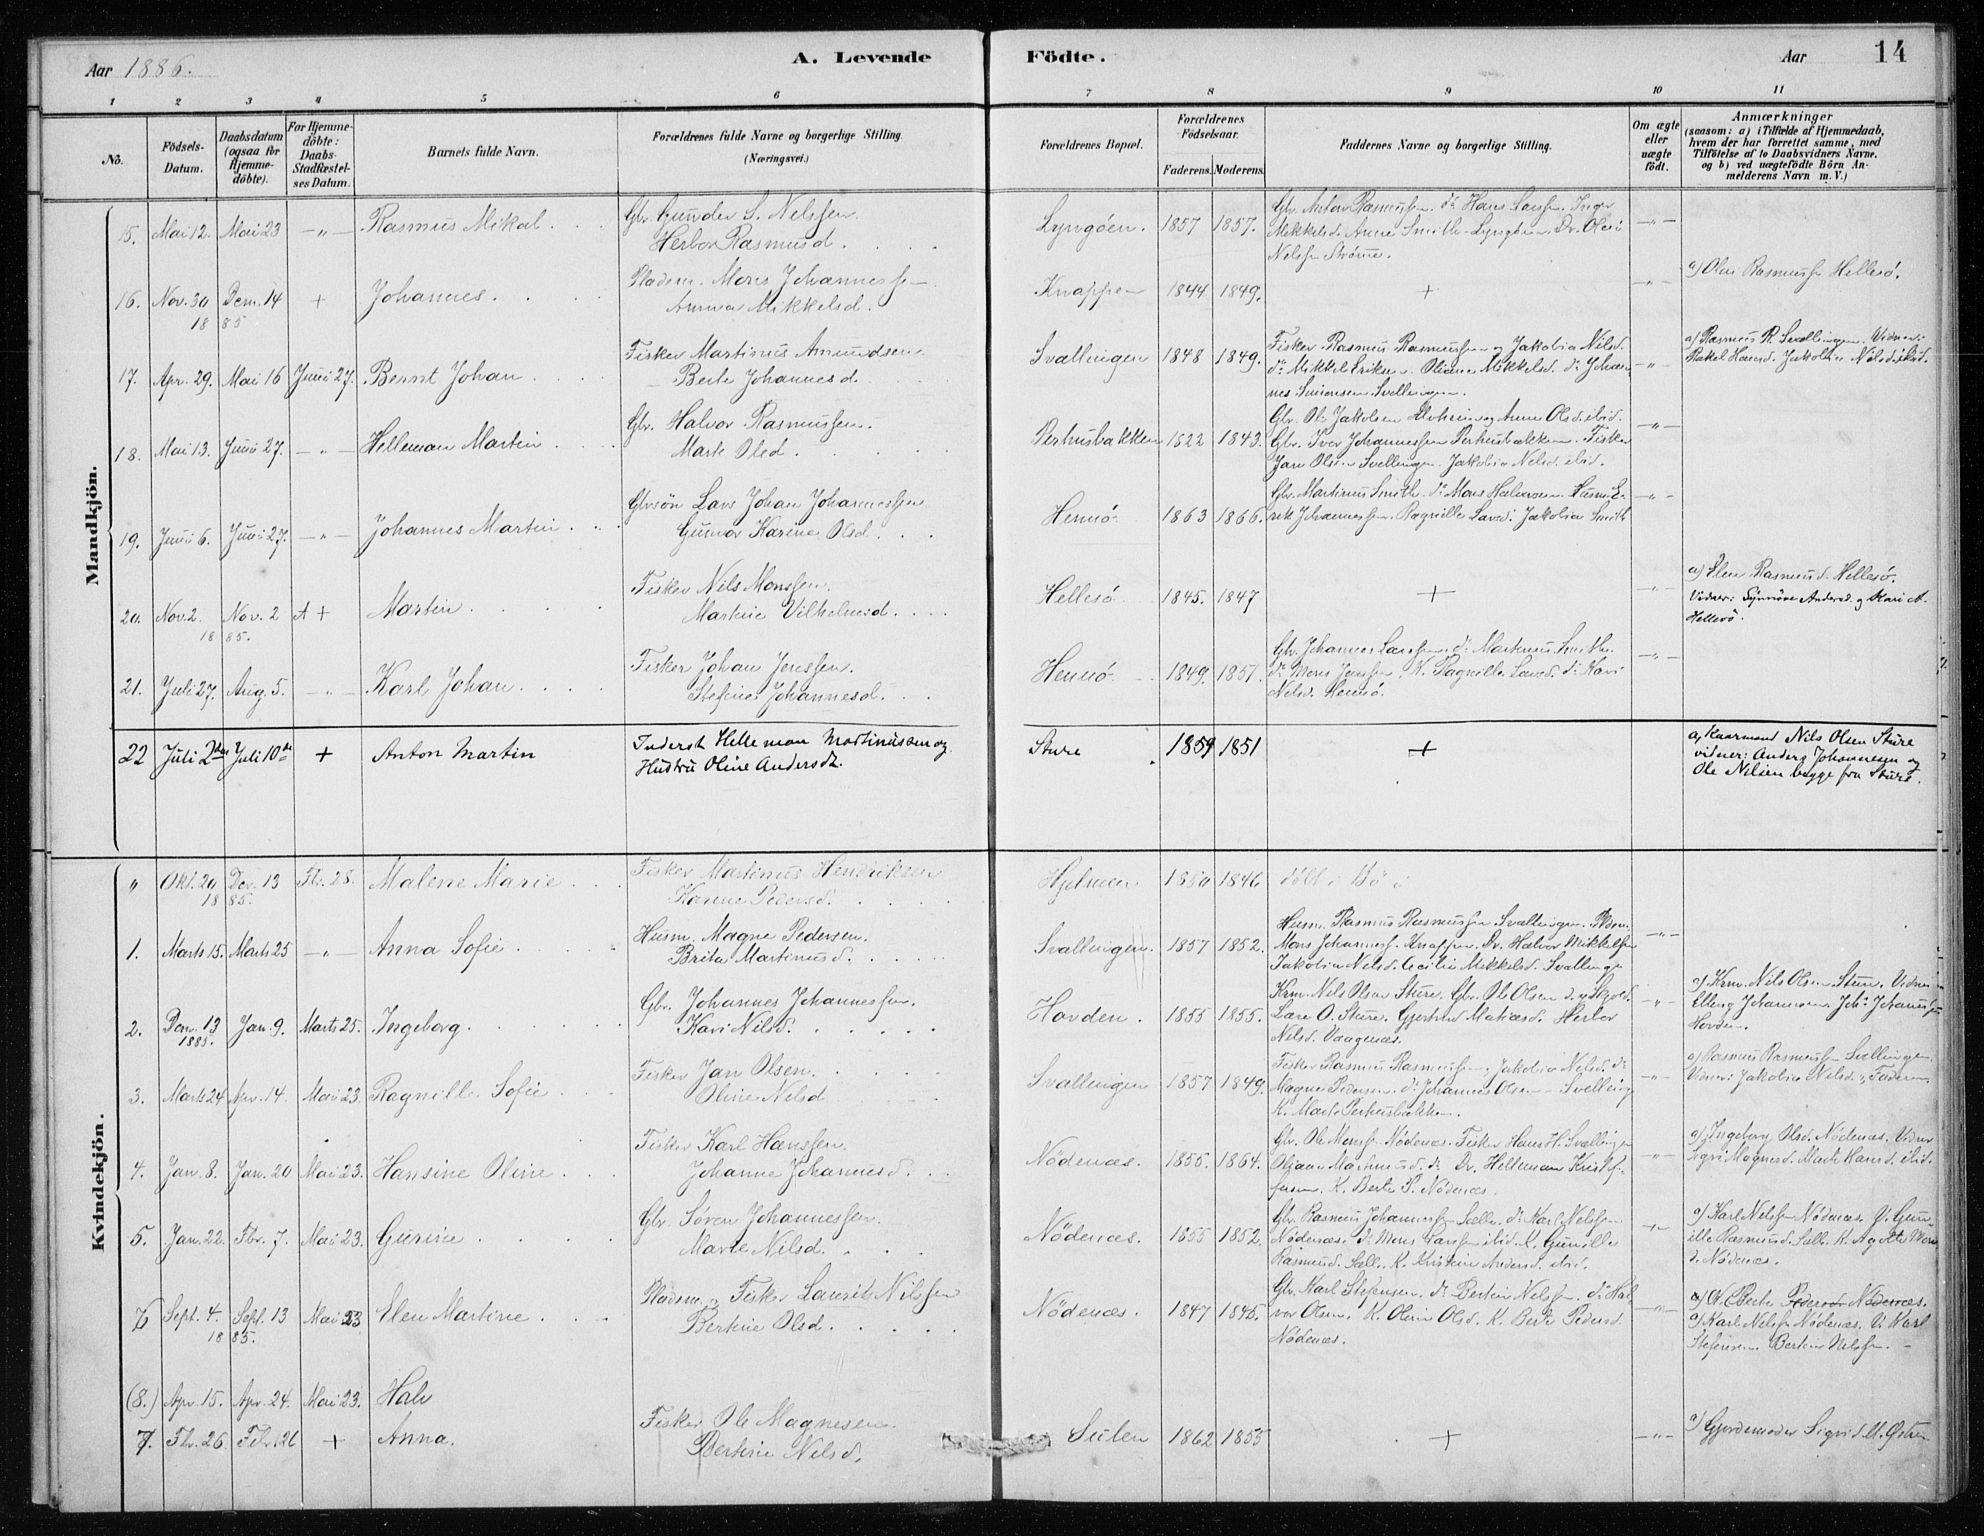 Aar 1886.
A. Levende
Födte.
Aar
14
1
2
3
4
5
6
7
8
9
10
11
No.
Födsels-
Datum.
Daabsdatum
(ogsaa for
Hjemme-
döbte).
For Hjemme-
döbte:
Daabs-
Stadfæstel-
ses Datum.
Barnets fulde Navn.
Forældrenes fulde Navne og borgerlige Stilling.
(Næringsvei.)
Forældrenes Bopæl.
Forældrenes
Födselsaar.
Faderens.
Moderens.
Faddernes Navne og borgerlige Stilling.
Om ægte
eller
uægte
födt.
Anmærkninger
(saasom: a) i Tilfælde af Hjemmedaab,
hvem der har forrettet samme, med
Tilföielse af to Daabsvidners Navne,
og b) ved uægtefödte Börn An-
melderens Navn m. V.)
Mandkjön.
15. Mai 12. Mai 23 —"— Rasmus Mikal.
Gbr. Gunder S. Nelssen.
Herbor Rasmusd.
Lyngöen. 1857 1857.
Gbr. Anton Rasmussen. do Hans Larsen. Inger
Mikkelsd. Anne Smith Dr. Ole
Nelssen Strøme. —"—
16. Nov. 30 Dem. 14 + Johannes.
18 85
Pladsm. Mons Johannessen
Anna Mikkelsd.
Knappen 1844 1849. + —"—
a) Olen Rasmussen Hellesö.
17. Apr. 29. Mai 16 Juni 27. Bernt Johan
Fisker Martinus Amundsen
Berte Johannesd.
Svallingen 1848 1849.
Fisker Rasmus Rasmussen og Jakobia Nilsd.
do Mikkel Eriksen. Oliane Mikkelsd. do Johan-
nes Simonsen Svellingen. —"—
a) Rasmus R. Svellingen. Vidner:
Rakel Hansd. Jakobia Nilsd. ibid.
18. Mai 13. Juni 27. —"— Helleman Martin
Gbr. Halvor Rasmussen.
Marte Olsd.
Perhusbakken 1822 1843.
Gbr. Ole Jakobsen og Anne Olsd. ibid.
Gbr. Iver Johannessen Perhusbakken. Fisker
Jan Olsen Svellingen. Jakobia Nelsd. ibid. —"—
19. Juni 6. Juni 27. —"— Johannes Martin
Gbrsön Lars Johan Johannessen
Gunvor Karine Olsd.
Hennö 1863 1866.
Gbr. Martinus Smith. do Mons Halvorsen. Husm. E-
rik Johannessen. Ragnille Larsd. Jakobia Smith —"—
20. Nov. 2. Nov. 2 A + Martin
18 85.
Fisker Nils Monssen.
Martine Vilhelmsd.
Hellesö 1845. 1847 + —"—
a) Elen Rasmusd. Hellesö.
Vidner: Synnöve Andersd. og Kari A.
Hellesö.
21. Juli 27. Aug. 5. —"— Karl Johan.
Fisker Johan Jenssen.
Stefine Johannesd.
Hennö 1849. 1851.
Gbr. Johannes Larssen. do Martinus Smith.
do Mons Jenssen. K. Ragnille Larsd. do Kari
Nilsd. Hennö. —"—
22 Juli 2den Juli 10de + Anton Martin
Inderst Helleman Martinussen og
Hustru Oline Andersdt.
Sture 1859 1851 +
a) Kaarmand Nils Olsen Sture
vidner: Anders Johannesen og
Ole Nilsen begge fra Sture.
Kvindekjön.
" Okt. 20 Dec. 13 Fbr. 28. Malene Marie
18 85.
Fisker Martinus Hendriksen
Karine Pedersd.
Hjelmen 1850 1846 döbt i Bö
1. Marts 15. Marts 25 —"— Anna Sofie
Husm. Magne Pedersen.
Brita Martinusd.
Svallingen. 1857 1852.
Husm. Rasmus Rasmussen Svallingen. Pladsm.
Mons Johanness. Knappen. Dr. Halvor Mikkelsen
Jakobia Nelsd. Cecilie Mikkelsd. Svallingen —"—
2. Dem. 13 Jan. 9. Marts 25. Ingeborg.
1885.
Gbr. Johannes Johannessen.
Kari Nilsd.
Hovden. 1855 1855.
Krm. Nils Olsen Sture. Gbr. Ole Olsen
Lars O. Sture. Gjertrud Matiasd. Herbor
Nelsd. Vaagenæs. —"—
a) Krm. Nils Olsen Sture. Vidner
Elling Johannesen. Johs Johannessen
Hovden.
3. Marts 24 Apr. 14. Mai 23. Ragnille Sofie
Fisker Jan Olsen.
Oline Nilsd.
Svallingen 1857 1849.
Fisker Rasmus Rasmussen. Jakobia Nelsd. do
Magne Pedersen. do Johannes Olsen Svelling
K. Marte Perhusbakken. —"—
a) Rasmus Rasmussen Svellingen.
Vidner: Jakobia Nilsd. og Faderen.
4. Jan. 8. Jan. 20 Mai 23. Hansine Oline
Fisker Karl Hanssen.
Johanne Johannesd.
Nödenæs. 1855. 1864.
Gbr. Ole Monssen Nödenæs. Fisker Hans H. Svellingen
Oliane Martinusd. do Dr. Helleman Kristof-
fersen. K. Berte S. Nödenæs. —"—
a) Ingeborg Olsd. Nödenæs. Vidner
Sigri Magnesd. Marte Hansd. ibid.
5. Jan. 22. Fbr. 7. Mai 23. Gurine
Gbr. Sören Johannessen.
Marte Nilsd.
Nödenæs. 1855 1852.
Gbr. Rasmus Johannessen Sæle. do Karl Nelssen
Nödenæs. do Mons Larssen ibid. K. Gunille
Rasmusd. Sæle. K. Kristine Andersd. ibid. —"—
a) Karl Nelssen Nödenæs. V. Gun-
ille Rasmusd. Sæle. K. Agate Mon
d. Nödenæs.
6 Sept. 4. Sept. 13 Mai 23. Elen Martine
18 85.
Pladsm. og Fisker Laurits Nilssen
Bertine Olsd.
Nödenæs. 1847 1845.
Gbr. Karl Stefensen. do Bertin Nelssen. do Hal-
vor Olsen. K. Oline Olsd. K. Berte Pedersd.
Nödenæs. —"—
a) Berte Pedersd. Nödenæs.
a) Karl Nelssen Nödenæs. V. Karl
Stefensen. Bertin Nelssen.
(8.) Apr. 15. Apr. 24. Mai 23. Halv
7. Fbr. 26. Febr. 26 + Anna.
Fisker Ole Magnesen.
Bertine Nilsd.
Sulen 1862 1855 + —"—
a) Gjordemoder Sigrid M.